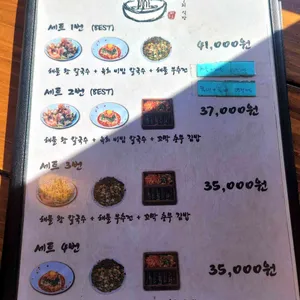 세트 1번 (BEST)
41,000원
해물 왕 칼국수 + 육회 비빔 칼국수 + 해물 부추전
세트 2번 (BEST)
37,000원
해물 왕 칼국수 + 육회 비빔 칼국수 + 꼬막 충무 김밥
세트 3번
35,000원
해물 왕 칼국수 + 해물 부추전 + 꼬막 충무 김밥
세트 4번
35,000원